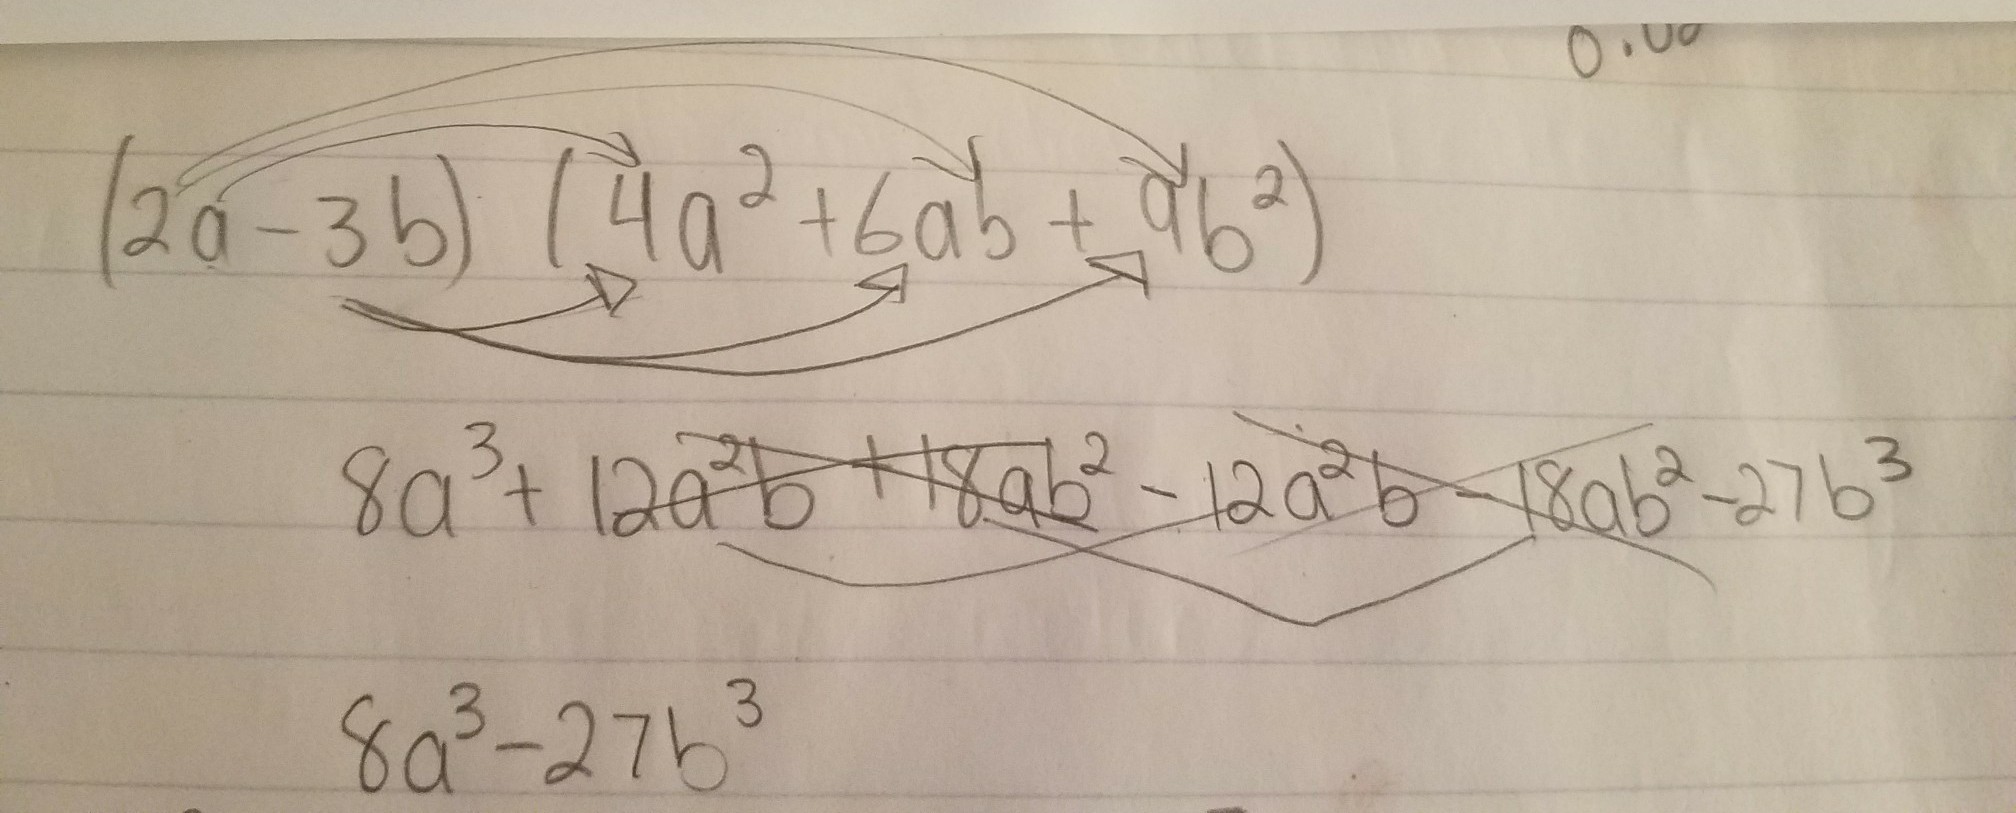 (2a-3b) (4a²+6ab+9b²)
8a³+12a²b+18ab²-12a²b-18ab²-27b³
8a³-27b³